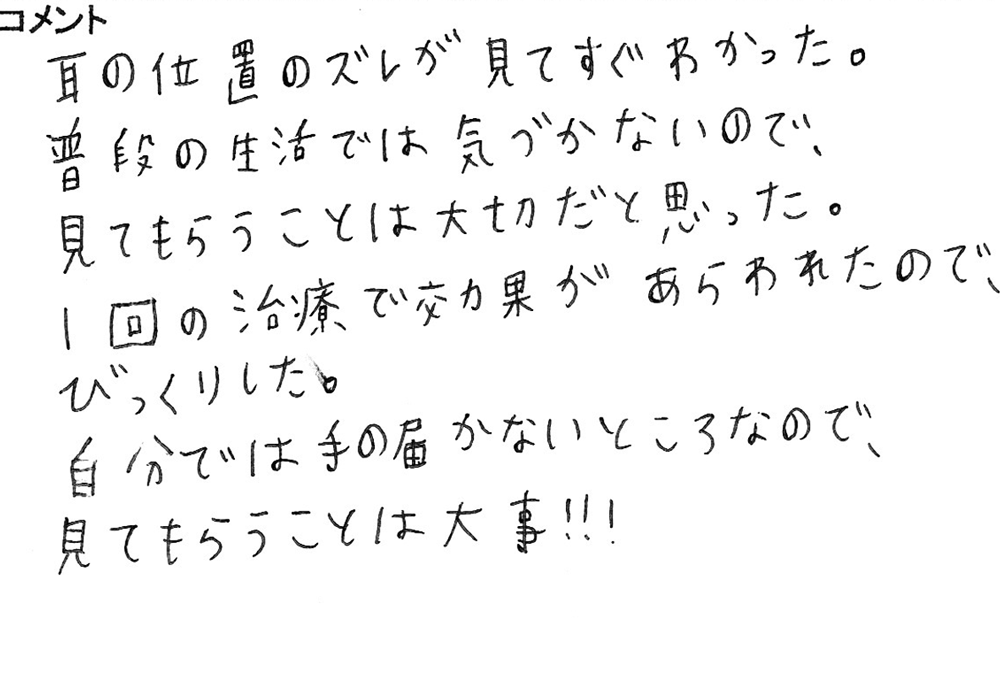 コメント
耳の位置のズレが見てすぐわかった。
普段の生活では気づかないので、
見てもらうことは大切だと思った。
1回の治療で効果があらわれたので、
びっくりした。
自分では手の届かないところなので、
見てもらうことは大事!!!